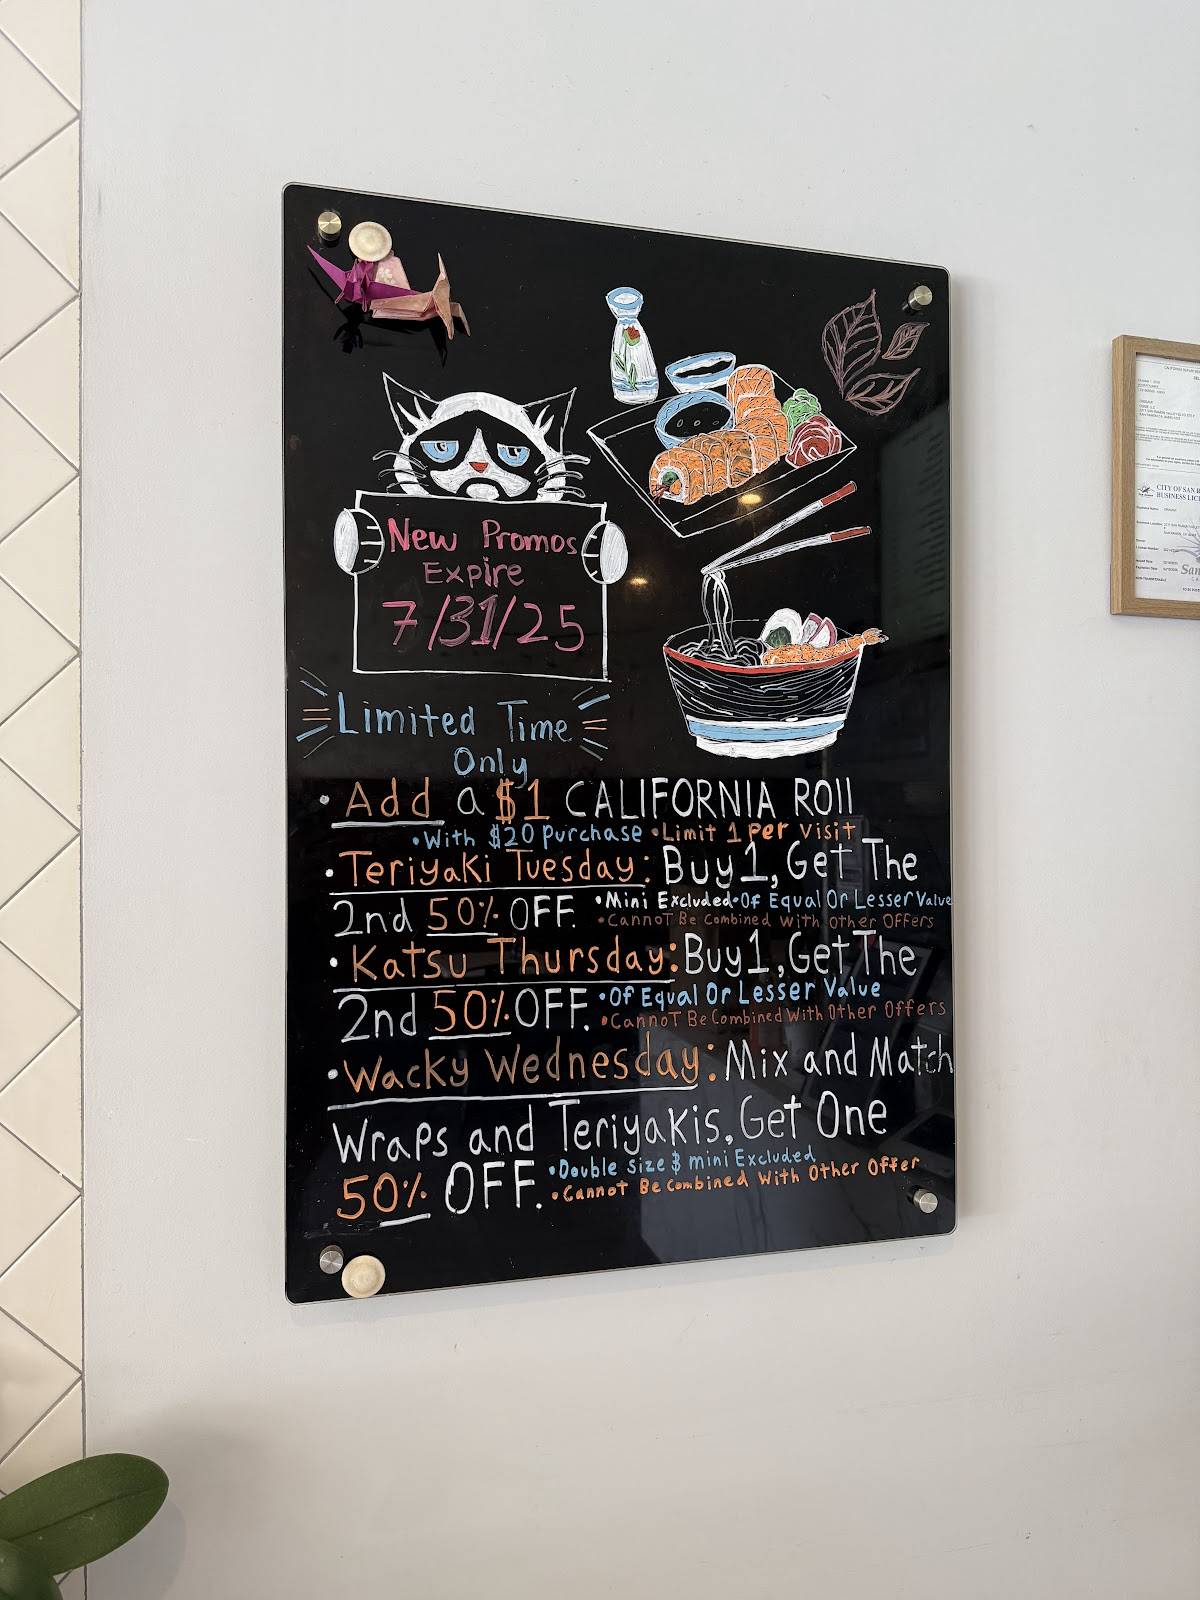 New Promos
Expire
7/31/25
Limited Time
Only
• Add a $1 CALIFORNIA ROll
• With $20 purchase • Limit 1 per visit
• Teriyaki Tuesday: Buy 1, Get The
2nd 50% OFF. • Mini Excluded • Of Equal Or Lesser Value
• Cannot Be Combined With Other Offers
• Katsu Thursday: Buy 1, Get The
2nd 50% OFF. • Of Equal Or Lesser Value
• Cannot Be Combined With Other Offers
• Wacky Wednesday: Mix and Match
Wraps and Teriyakis, Get One
50% OFF. • Double size & mini Excluded
• Cannot Be Combined With Other Offer
CITY OF SAN R
BUSINESS LIC